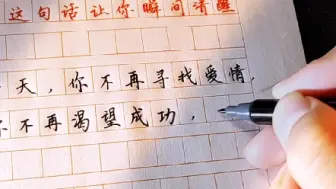 这句话让你瞬间清醒
天，你不再寻找爱情，
你不再渴望成功，